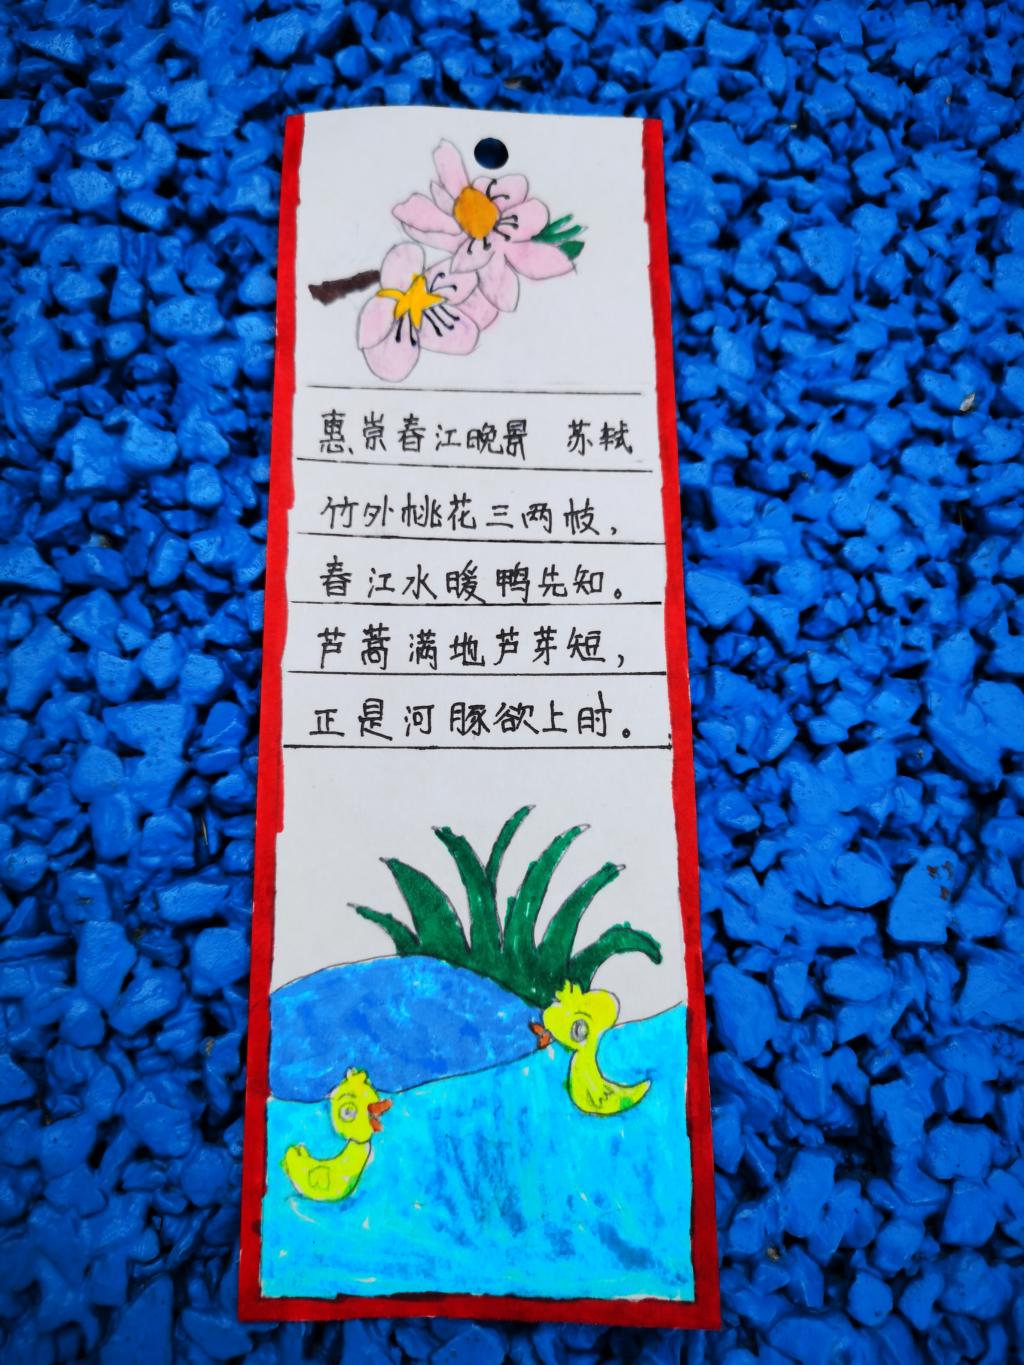 惠崇春江晚景 苏轼
竹外桃花三两枝，
春江水暖鸭先知。
芦蒿满地芦芽短，
正是河豚欲上时。